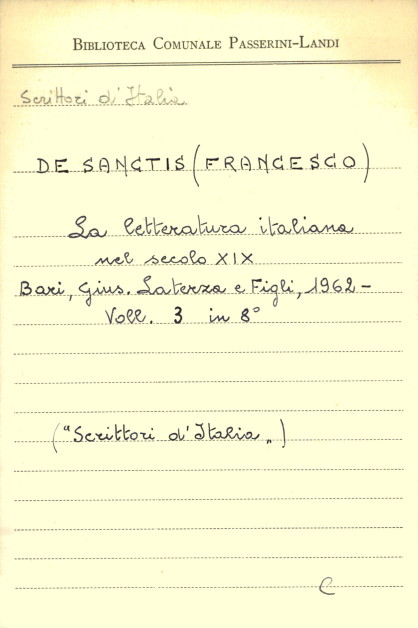 BIBLIOTECA COMUNALE PASSERINI-LANDI
Scrittori d'Italia
DE SANCTIS (FRANCESCO)
La letteratura italiana
nel secolo XIX
Bari, Gius. Laterza e Figli, 1962 -
Voll. 3 in 8°
("Scrittori d'Italia„)
C